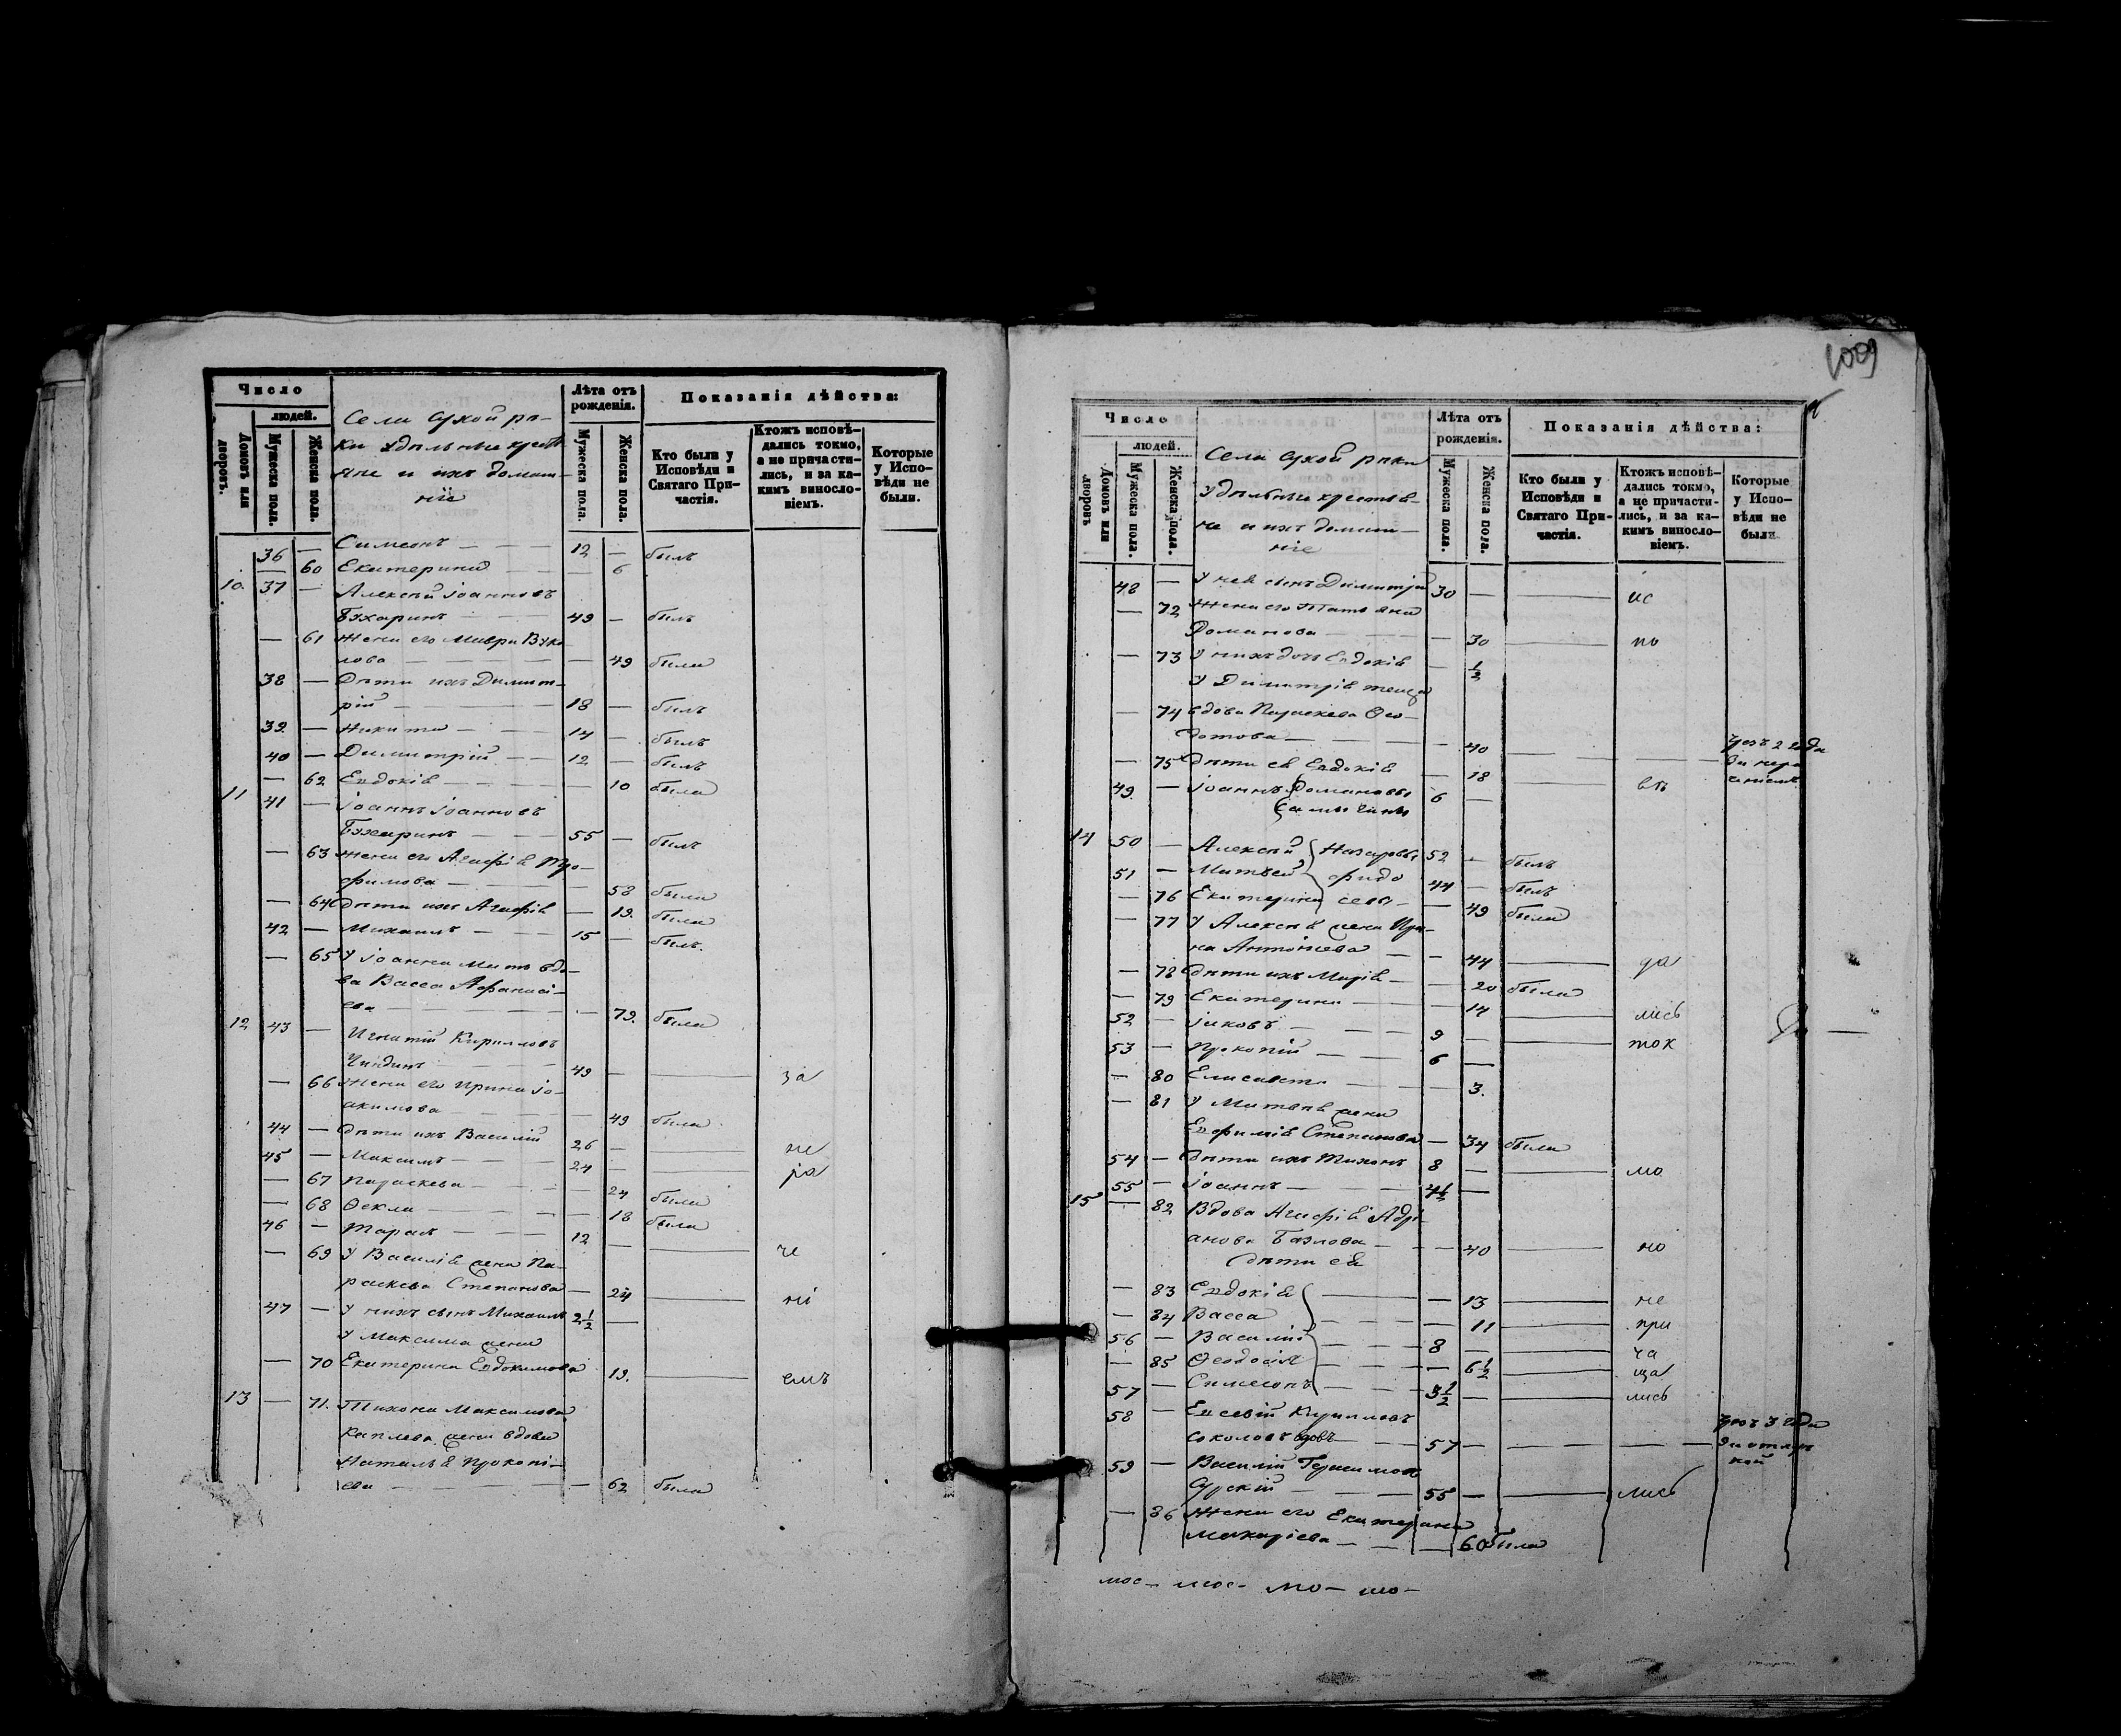 Число
людей.
Домовъ или дворовъ.
Мужеска пола.
Женска пола.
Села Сухой рѣ-
ки удѣльные крестья-
яне и ихъ домаш-
ніе
Лѣта отъ рожденія.
Мужеска пола.
Женска пола.
Показанія дѣйства:
Кто были у Исповѣди и Святаго При-частія.
Ктожъ исповѣ-дались токмо, а не причасти-лись, и за ка-кимъ винослo-віемъ.
Которые у Испо-вѣди не были.
36 — Симеонъ — 12 — былъ
— 60 Екатерина — 6
10. 37 — Алексѣй Іоанновъ
Бухаринъ — 49 — былъ
— 61 Жена его Мавра Вуко-
лова — 49 была
38 — Дѣти ихъ Димит-
рій — 18 — былъ
39 — Никита — 14 — былъ
40 — Димитрій — 12 — былъ
— 62 Евдокія — 10 была
11 41 — Іоаннъ Іоанновъ
Бухаринъ — 55 — былъ
— 63 Жена его Агафія Тро-
фимова — 58 была
— 64 Дѣти ихъ Агафія — 19. была
42 — Михаилъ — 15 — былъ.
— 65 У Іоанна мать вдо-
ва Васса Афанасі-
ева — 79. была
12 43 — Игнатій Кирилловъ
Чиндинъ — 49 — за
— 66 Жена его Ирина Іо-
акимова — 49 была
44 — Дѣти ихъ Василій 26 — не
45 — Максимъ — 24 — ра
— 67 Параскева — 24 была
— 68 Ѳекла — 18 была
46 — Тарасъ — 12 — че
— 69 У Василія жена Па-
раскева Степанова — 24 — ні
47 — У нихъ сынъ Михаилъ 2 1/2 —
У Максима жена
— 70 Екатерина Евдокимова 19. — емъ
13 — 71. Тихона Максимова
Каплева жена вдова
Наталья Прокопі-
ева — 62 была
1009
Число
людей.
Домовъ или дворовъ
Мужеска пола.
Женска пола.
Села Сухой рѣки
удѣльные крестья-
не и ихъ домаш-
ніе
Лѣта отъ рожденія.
Мужеска пола.
Женска пола.
Показанія дѣйства:
Кто были у Исповѣди и Святаго При-частія.
Ктожъ исповѣ-дались токмо, а не причасти-лись, и за ка-кимъ винослo-віемъ.
Которые у Испо-вѣди не были.
48 — У нея сынъ Димитрій 30 — ис
— 72 Жена его Татьяна
Доманова — 30 — по
— 73 У нихъ дочь Евдокія — 1/2
У Димитрія теща
— 74 вдова Параскева Ѳео-
дотова — 40 — чрезъ 2 года
за нера-
— 75 Дѣти ея Евдокія — 18 — вѣ
49. — Іоаннъ Домановы 6 —
14 50 — Алексѣй Назаровы 52 — былъ
51 — Матвей 44 — былъ
— 76 Екатерина — 49 была
— 77 У Алексѣя жена Ири-
на Антоніева — 44 — да
— 78 Дѣти ихъ Марія — 20 была
— 79 Екатерина — 14 — лись
52 — Іаковъ — 9 — ток
53 — Прокопій — 6 —
— 80 Елисавета — 3.
— 81 У Матвѣя жена
Евфимія Степанова — 34 была
54 — Дѣти ихъ Тихонъ 8 — мо
55 — Іоаннъ — 4 1/2 —
15 — 82 Вдова Агафія Адрі-
анова — 40 — но
Дѣти ея
— 83 Евдокія — 13 — не
— 84 Васса — 11 — при
56 — Василій — 8 — ча
— 85 Ѳеодосія — 6 1/2 — ща
57 — Симеонъ — 3 1/2 — лись
58 — Евсевій Кирилловъ
Соколовъ вдовъ — 57 — чрезъ 3 года
59 — Василій Герасимовъ
Сурскій — 55 — лись
— 86 Жена его Екатерина
Макаріева — 60 была